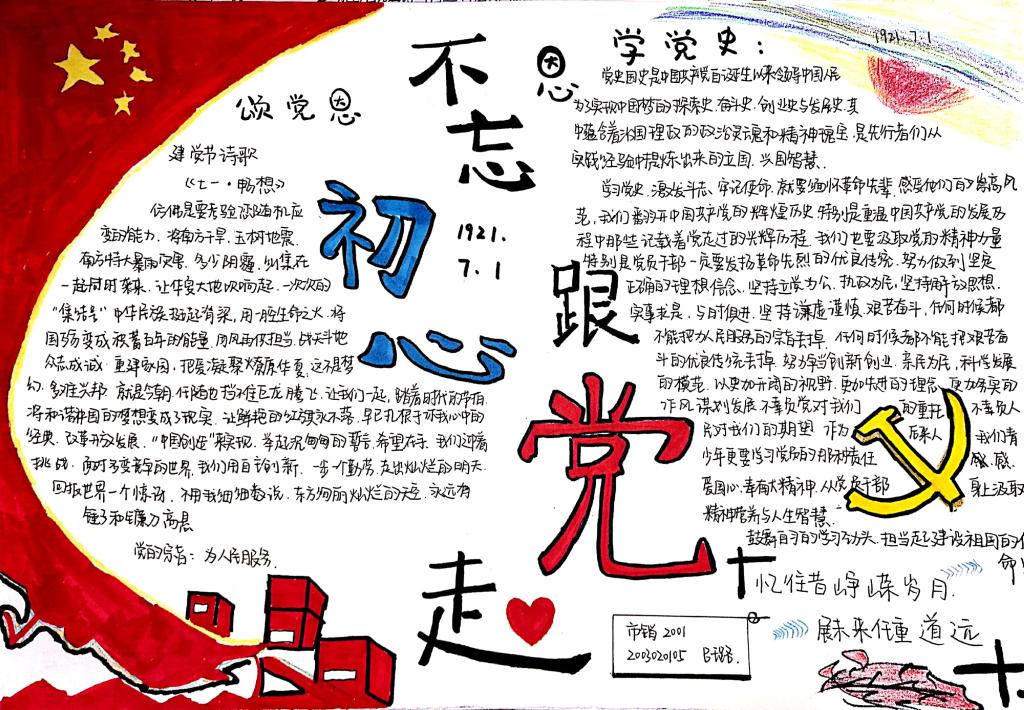 颂党恩
建党节诗歌
《七一·畅想》
仿佛是要考验你随机应
变的能力，将南方干旱，玉树地震，
南方特大暴雨灾害，多少阴霾，纠集在
一起同时袭来，让华夏大地吹响起一次次的
"集结号"中华民族挺起脊梁，用一腔生命之火，将
国殇变成积蓄百年的能量，用风雨你担当，战天斗地
众志成诚，重建家园，把爱凝聚燎原华夏，这不是梦
幻，多难兴邦，就是今朝，任随也挡不住巨龙腾飞，让我们一起，踏着时代的节拍
将和谐中国的梦想变成了现实，让鲜艳的红旗永不落，早已扎根于你我心中的
经典，改革开放发展，"中国创造"来实现，举起沉甸甸的誓言，希望在手，我们迎着
挑战，面对多变竞争的世界，我们用自主创新，一步一个勤劳，走出灿烂的明天，
回报世界一个惊奇，不用我细细数说，东方绚丽灿烂的天空，永远有
锤子和镰刀高悬
党的宗旨：为人民服务．
不忘
初心
1921.
7.1
恩
跟
党
走
学党史：
1921.7.1
党史国史是中国共产党自诞生以来领导中国人民
为了实现中国梦的探索史、奋斗史、创业史与发展史，其
中蕴含着治国理政的政治灵魂和精神瑰宝，是先行者们从
实践经验中提炼出来的立国、兴国智慧．
学习党史，激发斗志，牢记使命，就要缅怀革命先辈，感受他们的高风
范，我们翻开中国共产党的辉煌历史，特别是重温中国共产党的发展历
程中那些记载着党走过的光辉历程．我们也要汲取党的精神力量
特别是党员干部一定要发扬革命先烈的优良传统，努力做到坚定
正确的理想信念、坚持立党为公、执政为民，坚持解放思想、
实事求是、与时俱进，坚持谦虚谨慎、艰苦奋斗，任何时候都
不能把为人民服务的宗旨丢掉，任何时候都不能把艰苦奋
斗的优良传统丢掉，努力争当创新创业、亲民为民，科学发展
的模范，以更加开阔的视野，更加先进的理念，更力务实的
作风谋划发展，不辜负党对我们的重托，不辜负人
民对我们的期望，作为后来人，我们青
少年更要学习党员的那种责任感、
爱国心、奉献大精神，从党员干部身上汲取
精神营养与人生智慧，
鼓舞自身的学习劲头，担当起建设祖国的使
命！
忆往昔峥嵘岁月．
展未来任重道远
市销 2001
2003020105